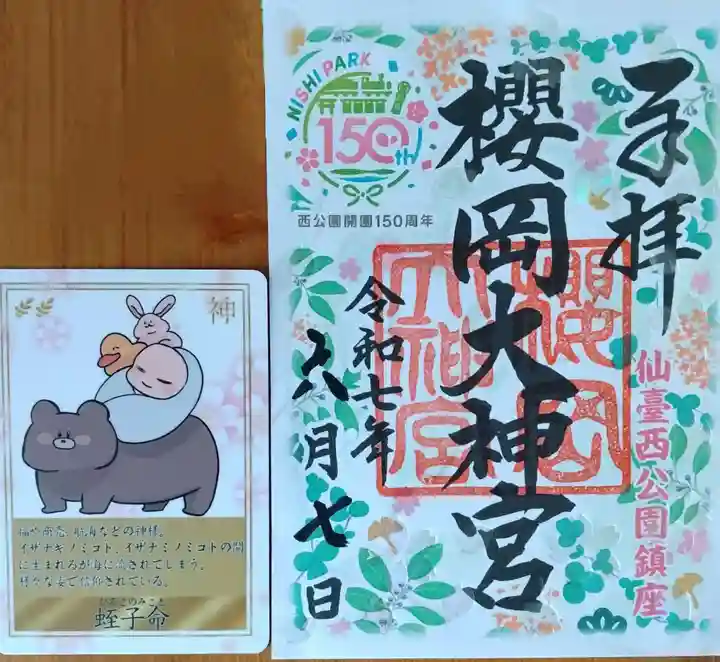 神
福や商売、航海などの神様。
イザナギノミコト、イザナミノミコトの間
に生まれるが海に流されてしまう。
様々な姿で信仰されている。
ひるこのみこと
蛭子命
NISHI PARK
150th
西公園開園150周年
奉拝
櫻岡大神宮
仙臺西公園鎮座
櫻岡
大神宮
令和七年
八月七日